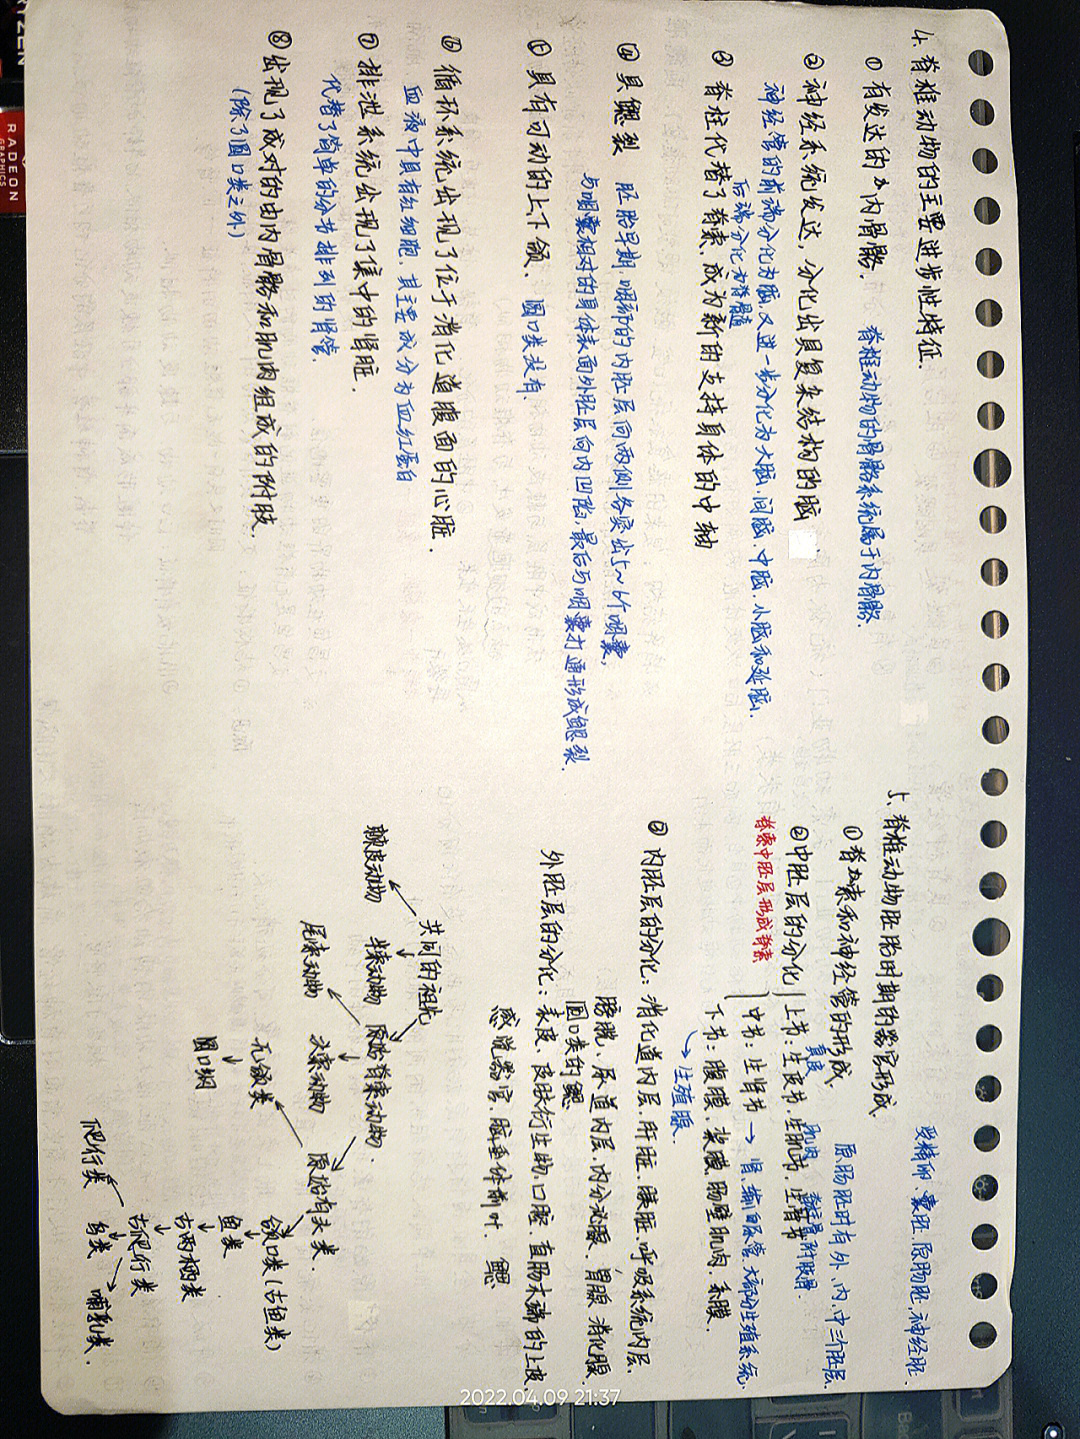 4. 脊椎动物的主要进步性特征.
① 有发达的内骨骼. 脊椎动物的骨骼系统属于内骨骼.
② 神经系统发达, 分化出具复杂结构的脑
神经管的前端分化为脑, 又进一步分化为大脑、间脑、中脑、小脑和延脑.
后端分化为脊髓
③ 脊柱代替了脊索, 成为新的支持身体的中轴
④ 具鳃裂 胚胎早期, 咽部的内胚层向两侧各突出5~6个咽囊,
与咽囊相对的身体表面外胚层向内凹陷, 最后与咽囊打通形成鳃裂.
⑤ 具有可动的上下颌. 圆口类没有.
⑥ 循环系统出现了位于消化道腹面的心脏.
血液中具有红细胞, 其主要成分为血红蛋白
⑦ 排泄系统出现了集中的肾脏.
代替了简单的分节排列的肾管.
⑧ 出现了成对的由内骨骼和肌肉组成的附肢.
(除了圆口类之外)
受精卵、囊胚、原肠胚、神经胚.
5. 脊椎动物胚胎时期的器官形成.
① 脊索和神经管的形成. 原肠胚时有外、内、中三个胚层.
② 中胚层的分化 上节: 生皮节、生肌节、生骨节
真皮 肌肉
脊索中胚层形成脊索
中节: 生肾节 → 肾、输尿管、大部分生殖系统.
下节: 腹膜、脏膜、肠壁肌肉、系膜.
→ 生殖腺.
③ 内胚层的分化: 消化道内层、肝脏、胰脏、呼吸系统内层、
膀胱、尿道内层、内分泌腺、胃腺、消化腺
圆口类的鳃
外胚层的分化: 表皮、皮肤衍生物、口腔、直肠末端的上皮、
感觉器官、脑垂体前叶. 鳃
共同的祖先
棘皮动物 半索动物 原始脊索动物.
尾索动物 头索动物 原始有头类.
无颌类 颌口类(古鱼类)
圆口纲 鱼类
古两栖类
古爬行类
爬行类 鸟类 哺乳类.
2022.04.09 21:37
RYZEN
RADEON
GRAPHICS